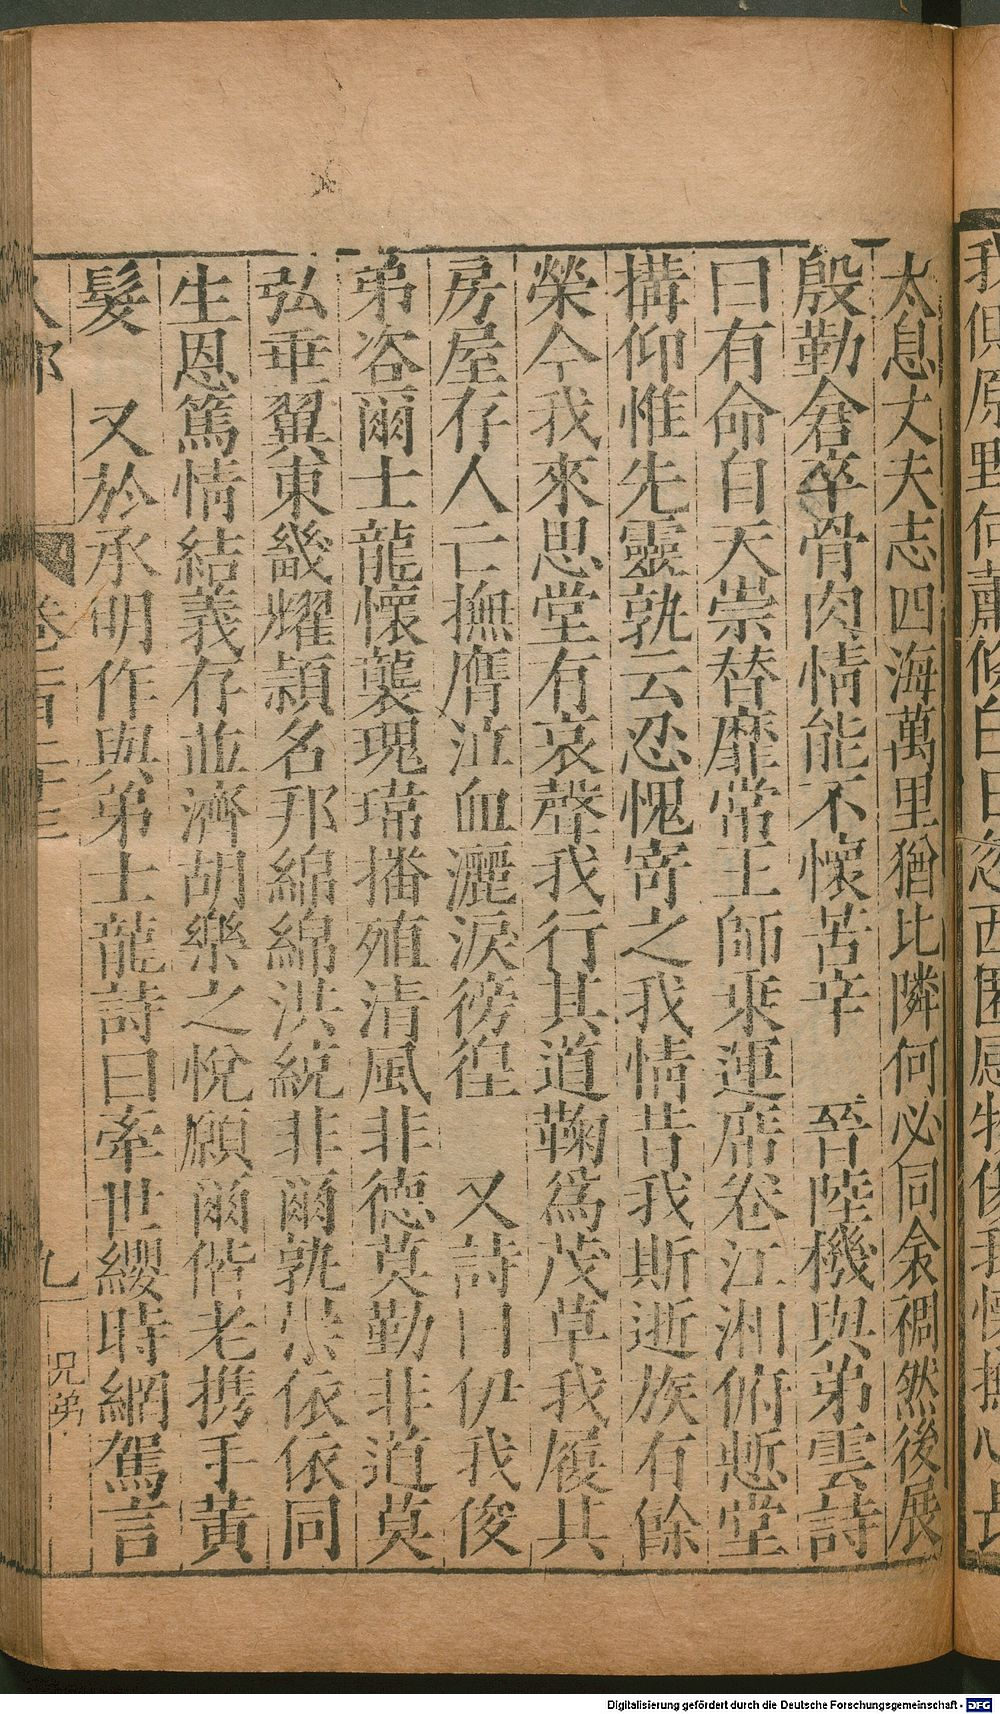 太息丈夫志四海萬里猶比隣何必同衾裯然後展
殷勤倉卒骨肉情能不懷苦辛　晉陸機與弟雲詩
曰有命自天崇替靡常王師乘運席卷江湘俯慙堂
搆仰惟先靈孰云忍愧寄之我情昔我斯逝族有餘
榮今我來思堂有哀聲我行其道鞠爲茂草我履其
房屋存人亡撫膺泣血灑淚徬徨　又詩曰伊我俊
弟咨爾士龍懷襲瑰瑋播殖清風非德莫勤非道莫
弘垂翼東畿耀頴名邦綿綿洪統非爾孰崇依依同
生恩篤情結義存並濟胡樂之悅願爾偕老携手黃
髮　又於承明作與弟士龍詩曰牽世纓時網駕言
人部
卷一百二十三
九
兄弟
Digitalisierung gefördert durch die Deutsche Forschungsgemeinschaft - DFG